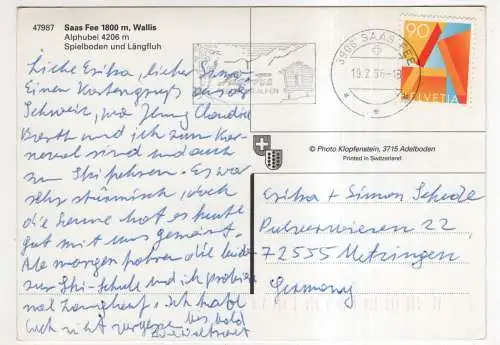 47987 Saas Fee 1800 m, Wallis
Alphubel 4206 m
Spielboden und Längfluh
Liebe Erika, lieber Simon
Einen Kartengruß aus der
Schweiz, wo Jenny Claudine
und ich zum Kar-
neval sind und auch
zum Ski fahren. Es war
sehr stürmisch, doch
die Sonne hat es heute
gut mit uns gemeint.
Ab morgen fahren die beiden
zur Ski-Schule und ich probiere
mal Langlauf. Ich habe
Euch nicht vergessen bis bald
3906 SAAS-FEE
19.2.96-18
90
HELVETIA
© Photo Klopfenstein, 3715 Adelboden
Printed in Switzerland
Erika + Simon
Pulverwiesen 22
72555 Metzingen
Germany